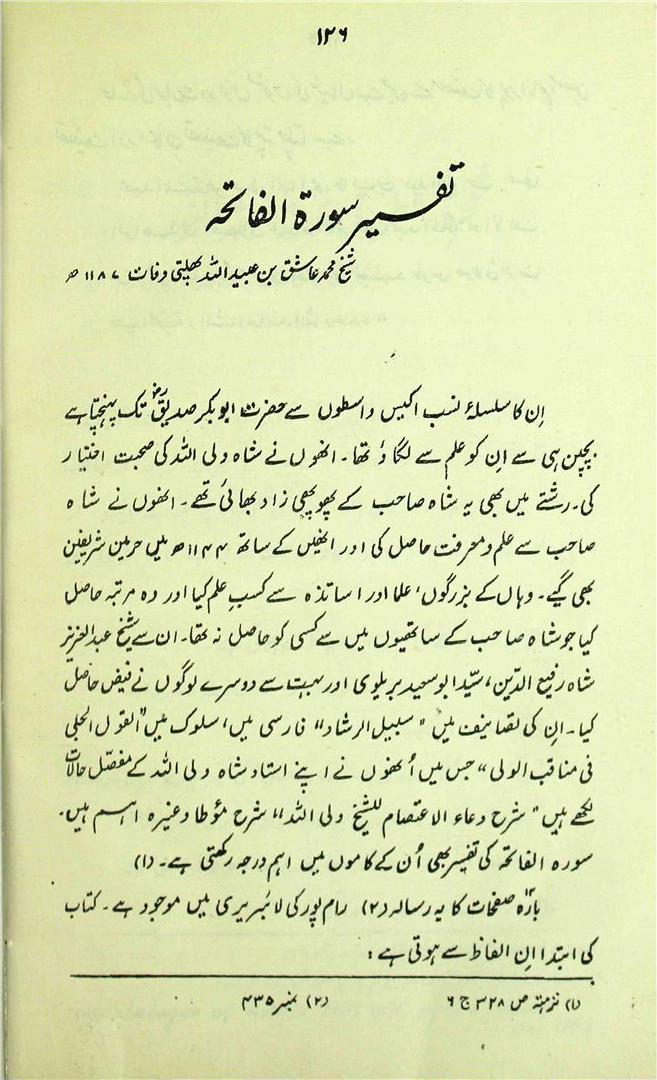 ۱۲۶
تفسیر سورة الفاتحہ
شیخ محمد عاشق بن عبید اللہ پھلتی وفات ۱۱۸۷ھ
اِن کا سلسلۂ نسب اکیس واسطوں سے حضرت ابوبکر صدیقؓ تک پہنچتا ہے
بچپن ہی سے ان کو علم سے لگاؤ تھا۔ انھوں نے شاہ ولی اللہ کی صحبت اختیار
کی۔ رشتے میں بھی یہ شاہ صاحب کے پھوپھی زاد بھائی تھے۔ انھوں نے شاہ
صاحب سے علم و معرفت حاصل کی اور انھیں کے ساتھ ۱۱۴۴ھ میں حرمین شریفین
بھی گیے۔ وہاں کے بزرگوں، علما اور اساتذہ سے کسبِ علم کیا اور وہ مرتبہ حاصل
کیا جو شاہ صاحب کے ساتھیوں میں سے کسی کو حاصل نہ تھا۔ ان سے شیخ عبدالعزیز
شاہ رفیع الدین، سیّد ابوسعید بریلوی اور بہت سے دوسرے لوگوں نے فیض حاصل
کیا۔ اِن کی تصانیف میں "سبیل الرشاد" فارسی میں، سلوک میں "القول الجلی
فی مناقب الولی" جس میں اُنھوں نے اپنے استاد شاہ ولی اللہ کے مفصّل حالات
لکھے ہیں "شرح دعاء الاعتصام للشیخ ولی اللہ" شرح مؤطا وغیرہ اہم ہیں۔
سورہ الفاتحہ کی تفسیر بھی اُن کے کاموں میں اہم درجہ رکھتی ہے۔ (۱)
بارہ صفحات کا یہ رسالہ (۲) رام پور کی لائبریری میں موجود ہے۔ کتاب
کی ابتدا اِن الفاظ سے ہوتی ہے:
(۱) نزہتہ ص ۳۲۸ ج ۶ (۲) نمبر ۴۳۵